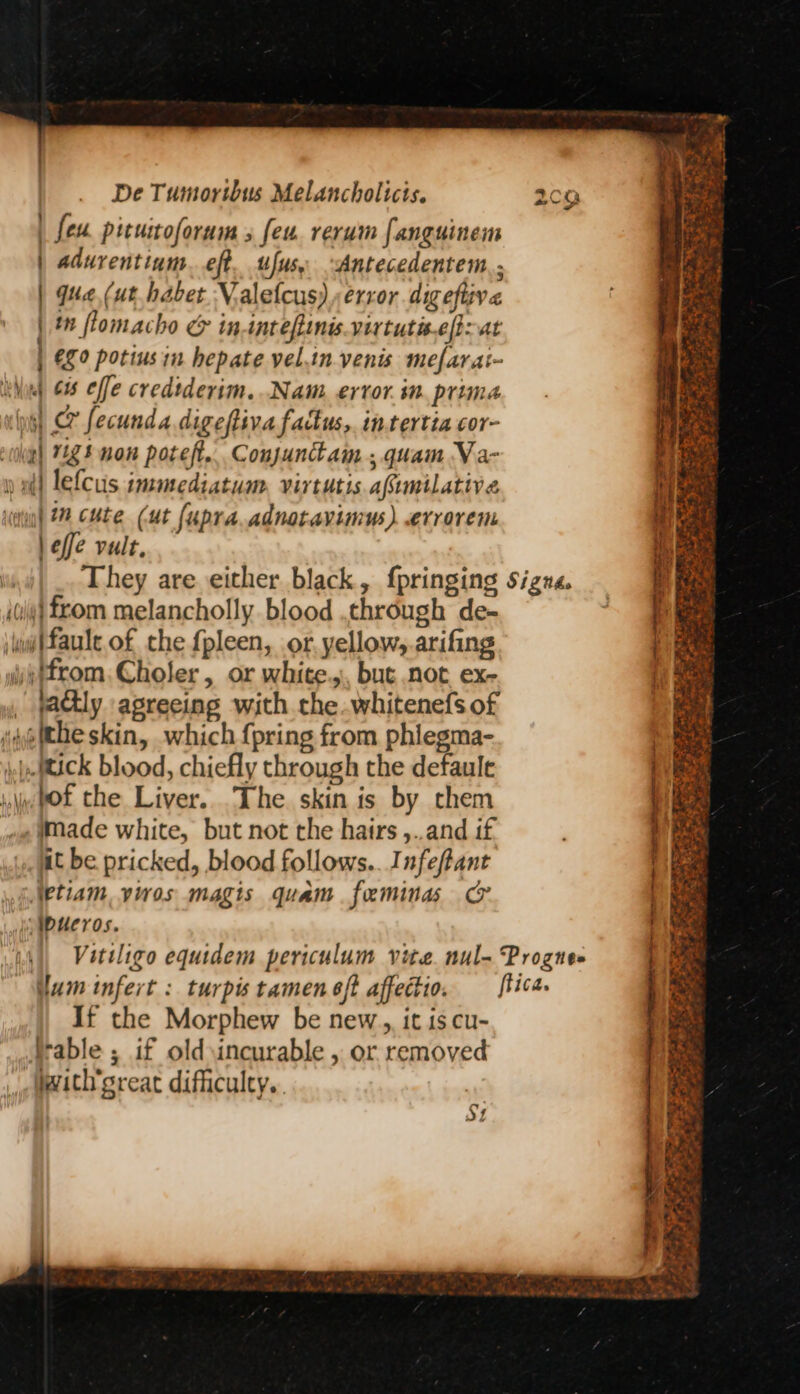 De Tumoribus Melancholicis. 209
ſeu pituitoſorum, ſeu rerum ſanguinem
adurentium eſt uſus, Antecedentem;
quæ (ut habet Valeſcus) error digeſtivæ
in ſtomacho & in inteſtinis virtutis eſt: at
ego potius in hepate vel in venis meſarai-
cis eſſe crediderim. Nam error in prima
& ſecunda digeſtiva factus, in tertia cor-
rigi non poteſt. Conjunctam; quam Va-
leſcus immediatum virtutis aſſimilativæ
in cute (ut ſupra adnotavimus) errorem
eſſe vult.
They are either black, ſpringing Signa.
from melancholly blood through de-
fault of the ſpleen, or yellow, ariſing
from Choler, or white, but not ex-
actly agreeing with the whiteneſs of
the skin, which ſpring from phlegma-
tick blood, chiefly through the default
of the Liver. The skin is by them
made white, but not the hairs, and if
it be pricked, blood follows. Infeſtant
etiam viros magis quàm fœminas &
pueros.
Vitiligo equidem periculum vitæ nul- Progno-
lum infert: turpis tamen eſt affectio. ſtica.
If the Morphew be new, it is cu-
rable; if old incurable, or removed
with great difficulty.